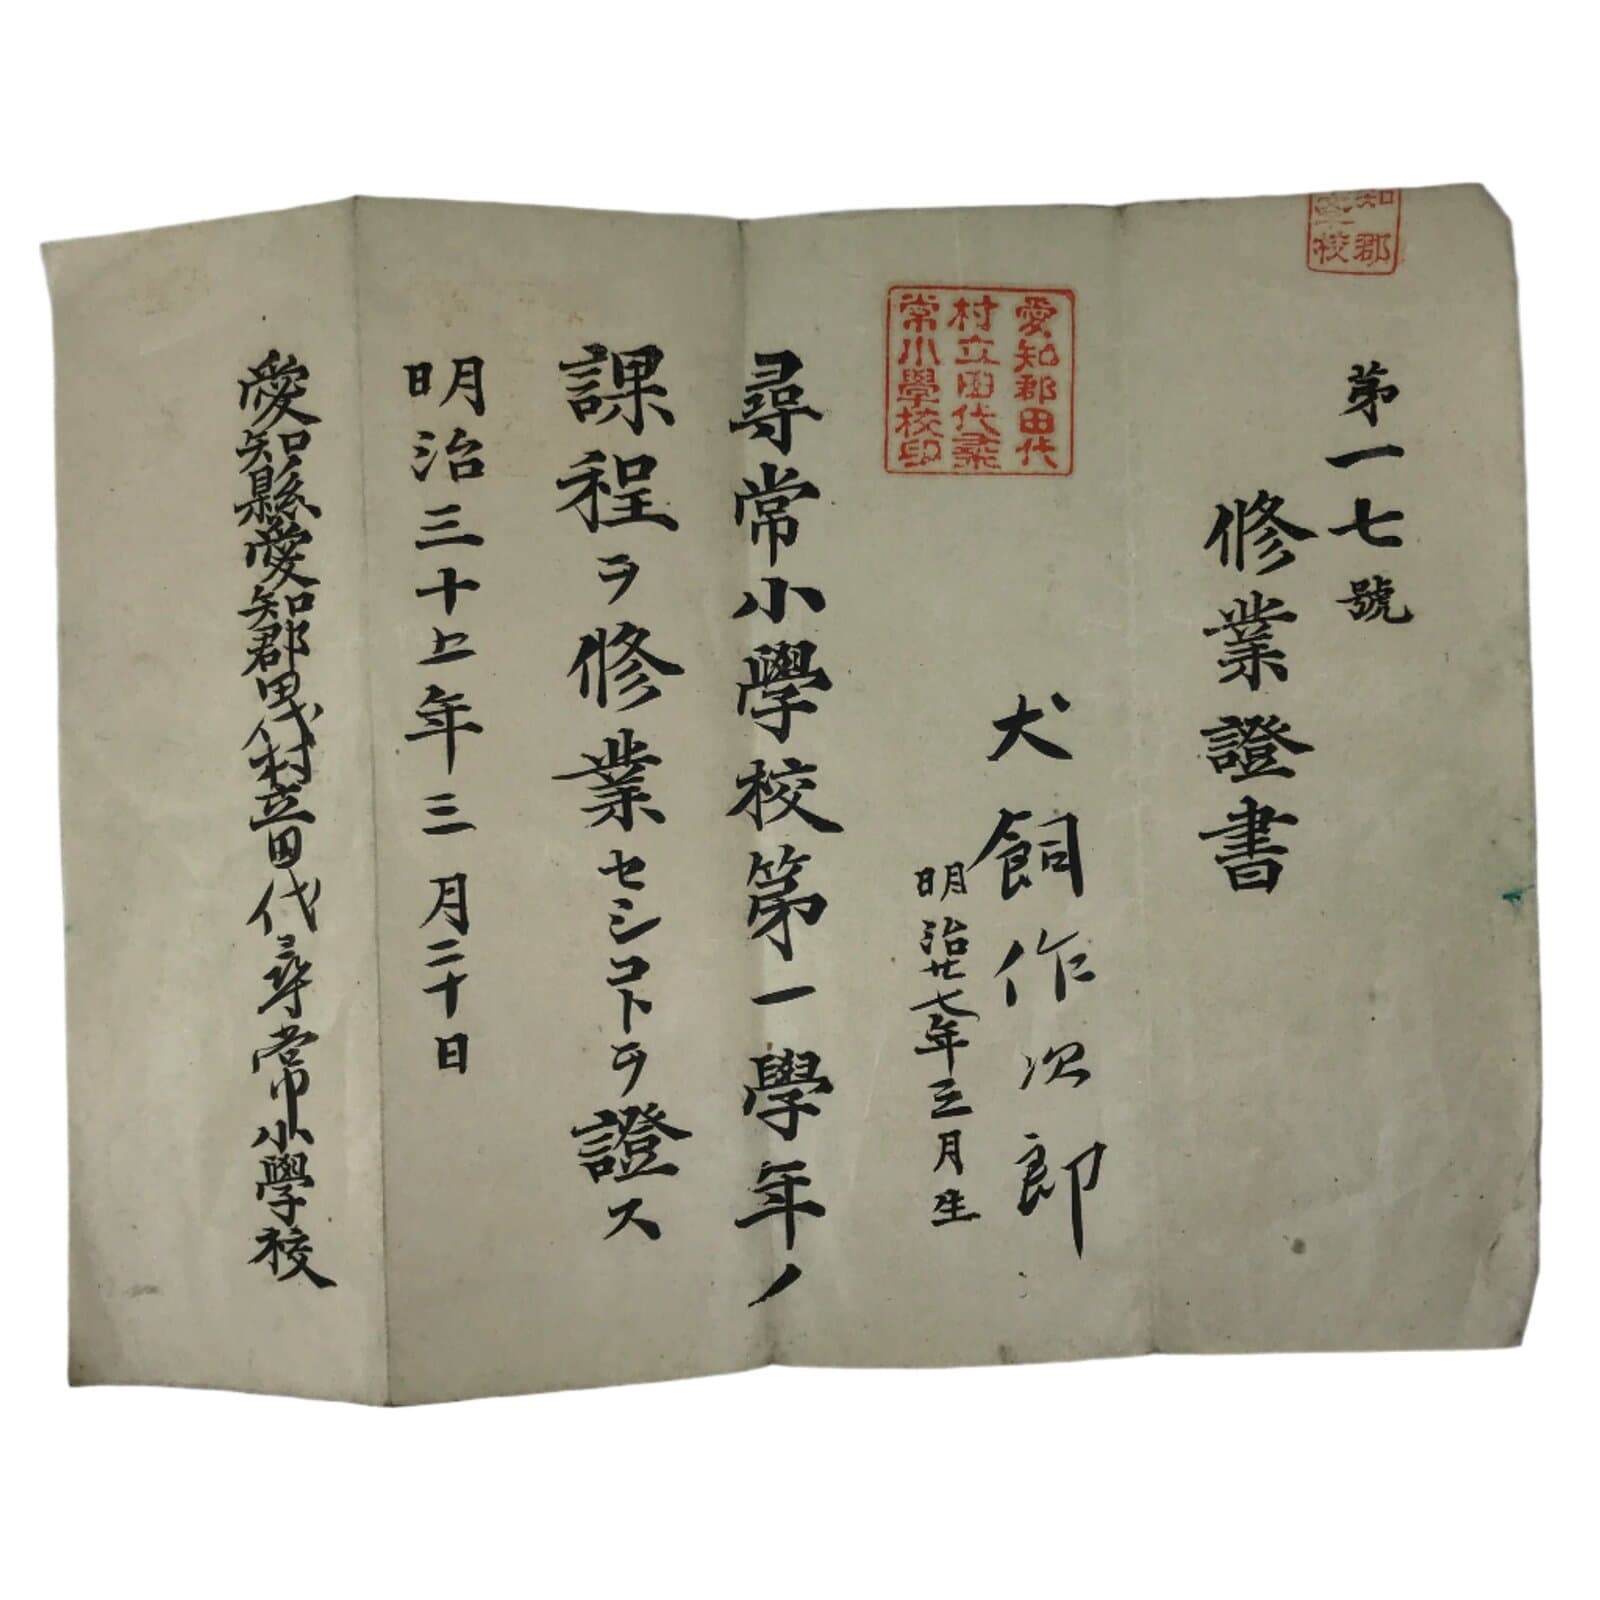 知郡
校
第一七號
修業證書
愛知郡田代
村立田代尋
常小學校印
犬飼作次郎
明治廿七年三月生
尋常小學校第一學年ノ
課程ヲ修業セシコトヲ證ス
明治三十七年三月二十日
愛知縣愛知郡田代村立田代尋常小學校